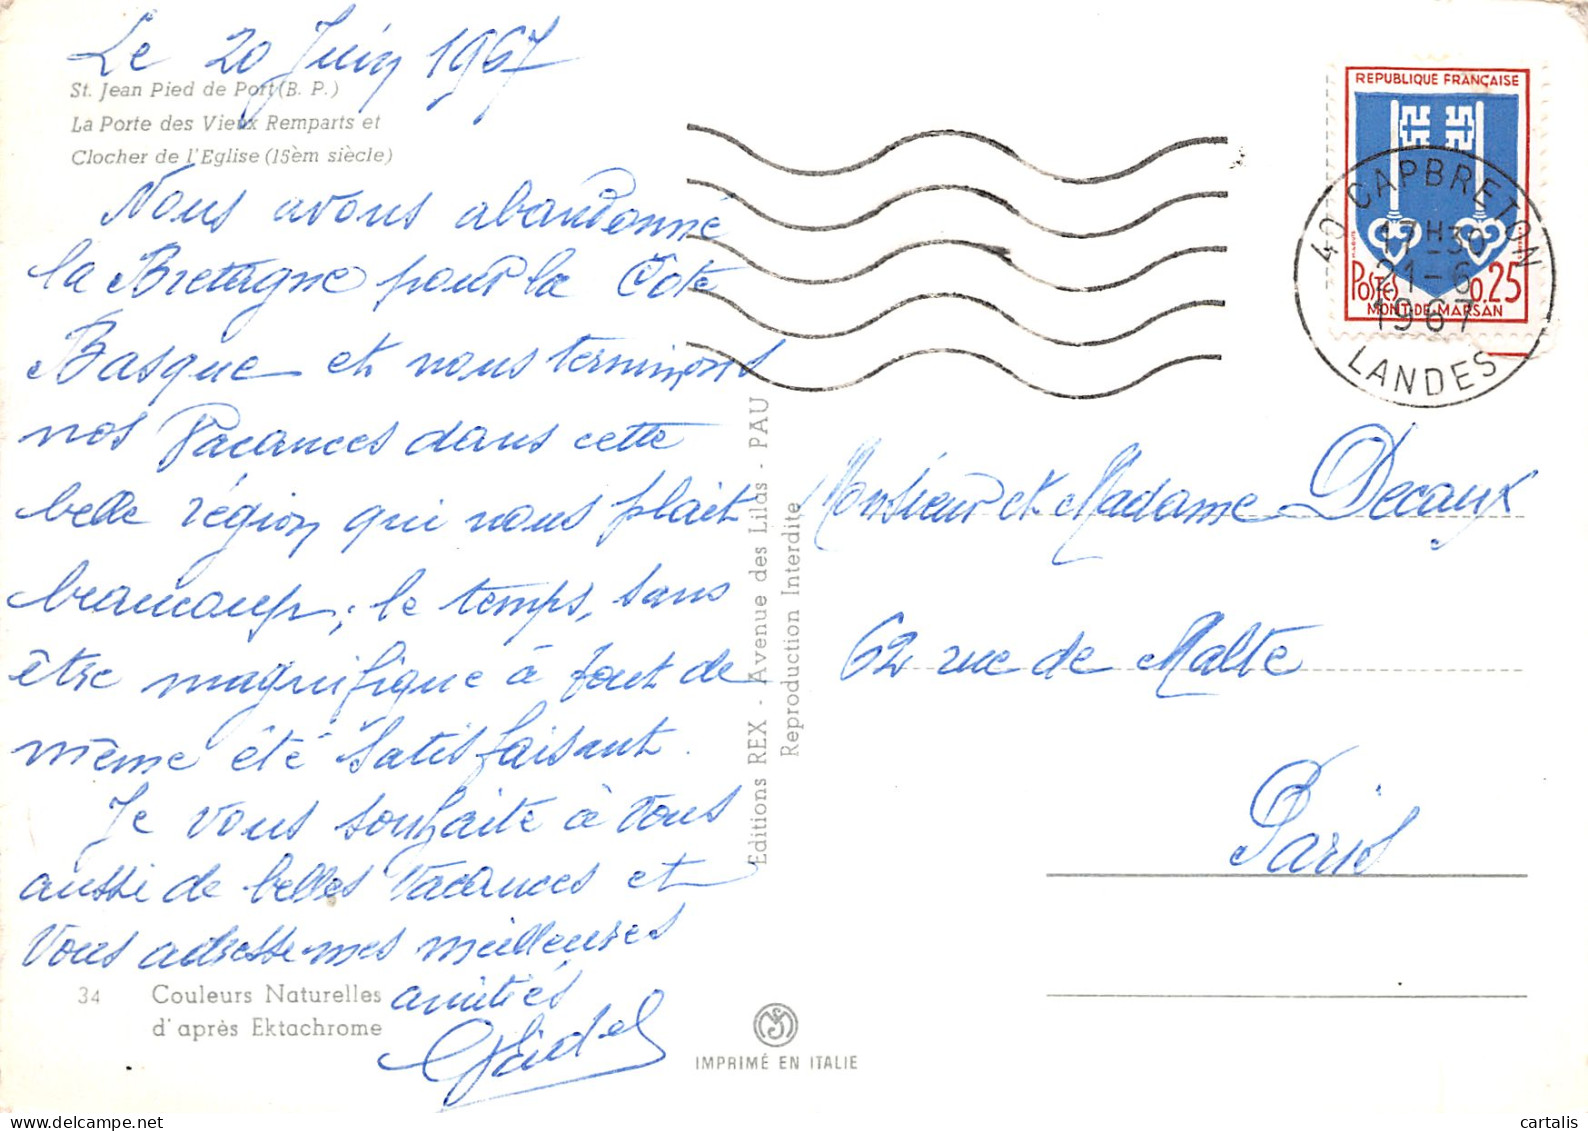 Le 20 Juin 1967
St. Jean Pied de Port (B. P.)
La Porte des Vieux Remparts et
Clocher de l'Eglise (15èm siècle)
Nous avons abandonné
la Bretagne pour la Côte
Basque et nous terminons
nos Vacances dans cette
belle région qui nous plait
beaucoup; le temps, sans
être magnifique a tout de
même été satisfaisant.
Je vous souhaite à vous
aussi de belles vacances et
vous adresse mes meilleures
amitiés
34 Couleurs Naturelles
d'après Ektachrome
Editions REX - Avenue des Lilas - PAU
Reproduction Interdite
IMPRIMÉ EN ITALIE
REPUBLIQUE FRANÇAISE
POSTES 0.25
MONT-DE-MARSAN
40 CAPBRETON
17H-30
21-6
1967
LANDES
Monsieur et Madame Decaux
62 rue de Malte
Paris
cartalis
delcampe.net